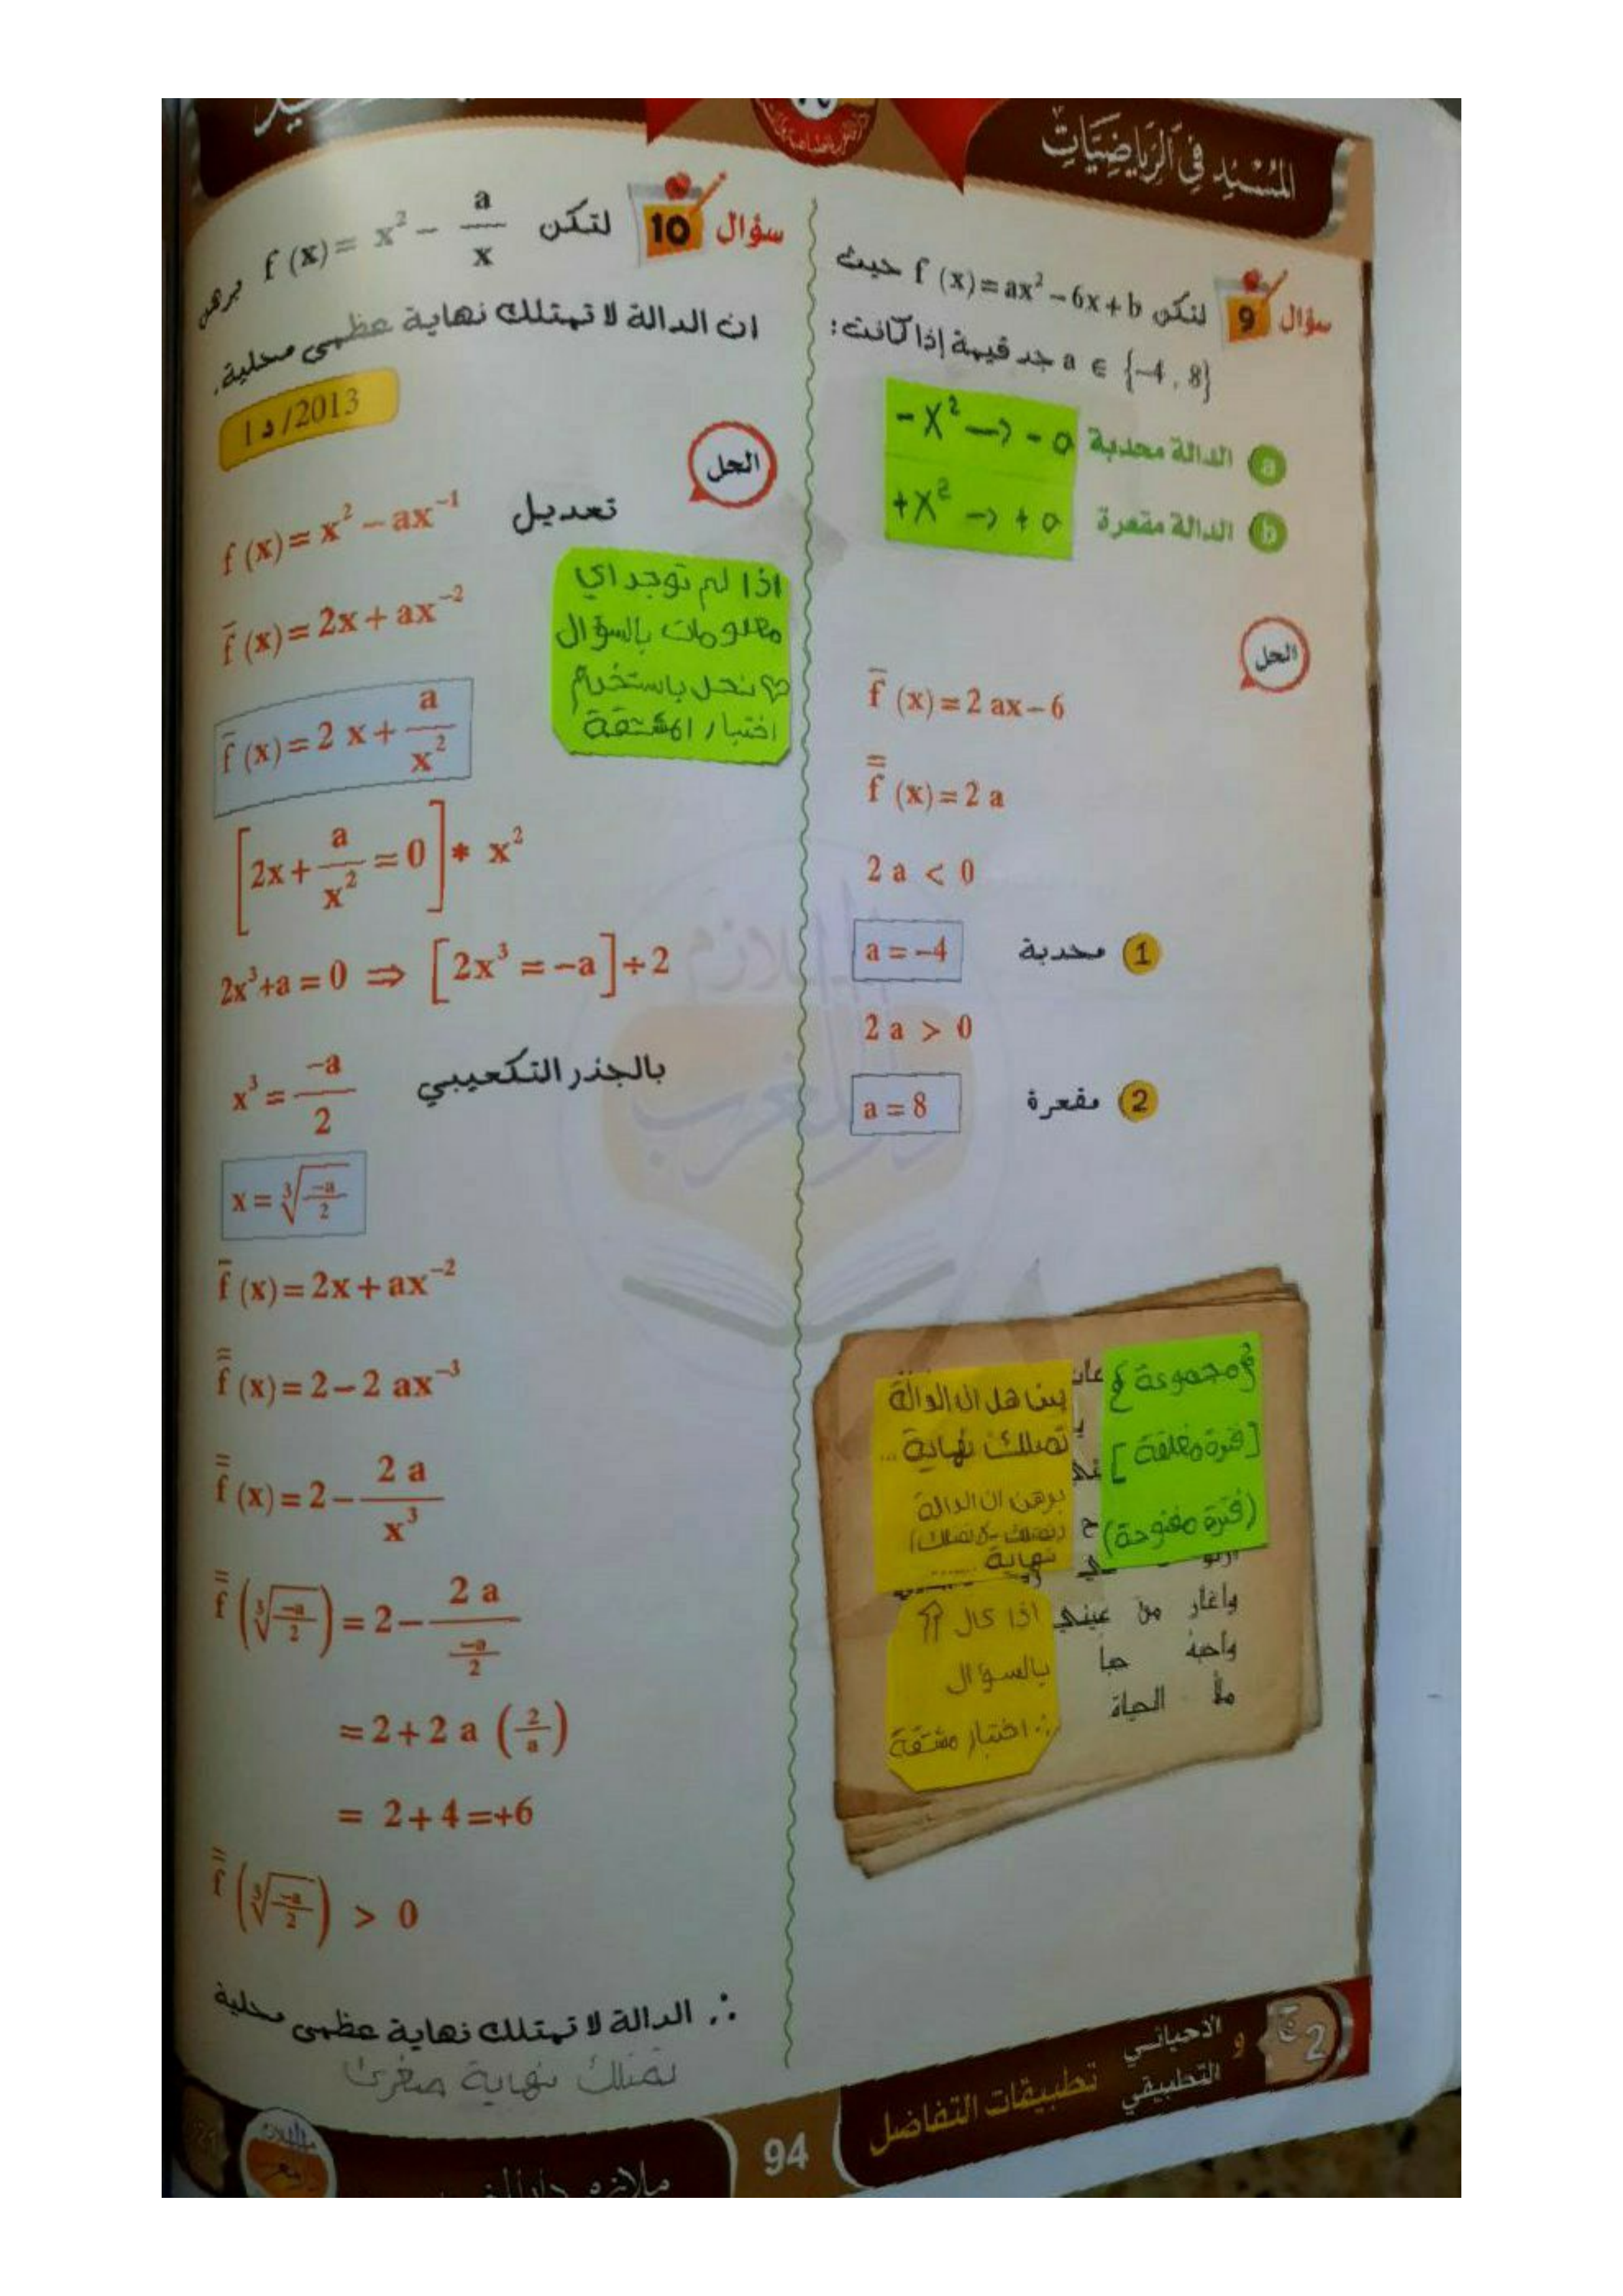 المُسْنِد فِي الرِّيَاضِيَّاتِ
سؤال 9 لتكن f (x) = ax² − 6x + b حيث
a ∈ {−4 , 8} جد قيمة إذا كانت :
a الدالة محدبة
-x² → -a
b الدالة مقعرة
+x² → +a
الحل
f̄ (x) = 2 ax − 6
f̿ (x) = 2 a
2 a < 0
1 محدبة a = −4
2 a > 0
2 مقعرة a = 8
{مجموعة}
[فترة مغلقة]
(فترة مفتوحة)
بين هل ان الدالة
تمتلك نهاية ...
برهن ان الدالة
(تمتلك - لا تمتلك)
نهاية ......
اذا كال ⇑
بالسؤال
∴ اختبار مشتقة
واغار من عيني
واحبهُ حباً
ملأ الحياة
سؤال 10 لتكن f (x) = x² − a/x برهن
ان الدالة لا تمتلك نهاية عظمى محلية .
2013/ د1
الحل
f (x) = x² − ax⁻¹ تعديل
f̄ (x) = 2x + ax⁻²
اذا لم توجد اي
معلومات بالسؤال
نحل باستخدام
اختبار المشتقة
f̄ (x) = 2 x + a/x²
[2x + a/x² = 0] * x²
2x³+a = 0 ⇒ [2x³ = −a] ÷ 2
x³ = −a/2 بالجذر التكعيبي
x = ∛(−a/2)
f̄ (x) = 2x + ax⁻²
f̿ (x) = 2 − 2 ax⁻³
f̿ (x) = 2 − 2 a/x³
f̿ (∛(−a/2)) = 2 − 2 a/(−a/2)
= 2 + 2 a (2/a)
= 2 + 4 = +6
f̿ (∛(−a/2)) > 0
∴ الدالة لا تمتلك نهاية عظمى محلية
تمتلك نهاية صغرى
2 ج
الاحيائي
و
التطبيقي
تطبيقات التفاضل
94